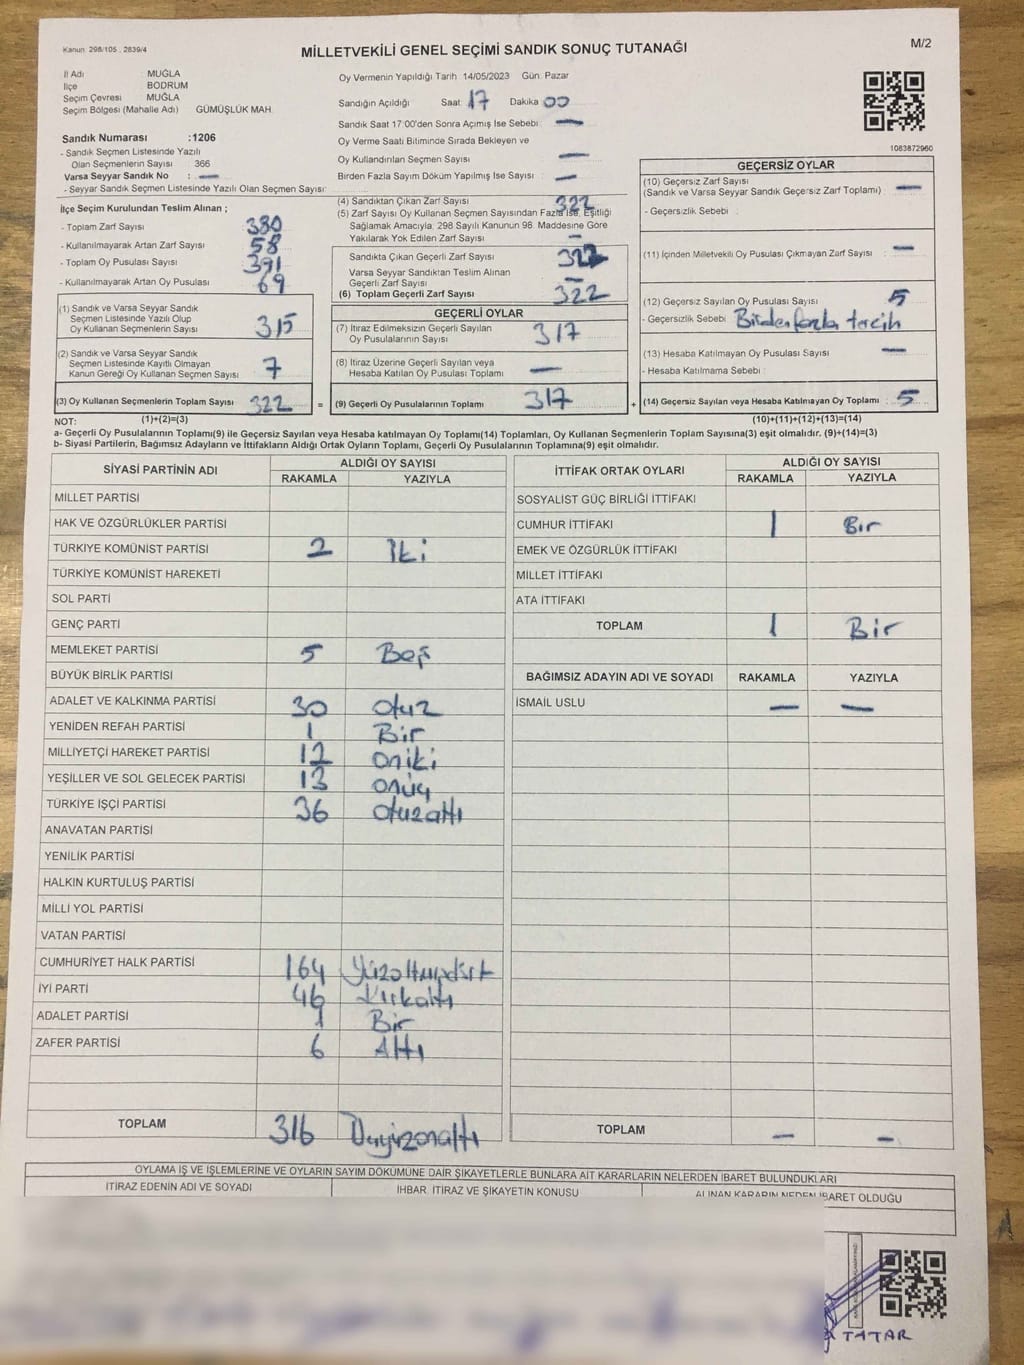 Kanun: 298/105 , 2839/4
MİLLETVEKİLİ GENEL SEÇİMİ SANDIK SONUÇ TUTANAĞI
M/2
İl Adı : MUĞLA
İlçe BODRUM
Seçim Çevresi : MUĞLA
Seçim Bölgesi (Mahalle Adı) GÜMÜŞLÜK MAH.
Sandık Numarası :1206
- Sandık Seçmen Listesinde Yazılı
Olan Seçmenlerin Sayısı : 366
Varsa Seyyar Sandık No : —
- Seyyar Sandık Seçmen Listesinde Yazılı Olan Seçmen Sayısı:
Oy Vermenin Yapıldığı Tarih 14/05/2023 Gün: Pazar
Sandığın Açıldığı Saat: 17 Dakika 00
Sandık Saat 17:00'den Sonra Açımış İse Sebebi : —
Oy Verme Saati Bitiminde Sırada Bekleyen ve
Oy Kullandırılan Seçmen Sayısı : —
Birden Fazla Sayım Döküm Yapılmış İse Sayısı : —
1083872960
İlçe Seçim Kurulundan Teslim Alınan ;
- Toplam Zarf Sayısı : 380
- Kullanılmayarak Artan Zarf Sayısı : 58
- Toplam Oy Pusulası Sayısı : 391
- Kullanılmayarak Artan Oy Pusulası : 69
(1) Sandık ve Varsa Seyyar Sandık
Seçmen Listesinde Yazılı Olup
Oy Kullanan Seçmenlerin Sayısı : 315
(2) Sandık ve Varsa Seyyar Sandık
Seçmen Listesinde Kayıtlı Olmayan
Kanun Gereği Oy Kullanan Seçmen Sayısı : 7
(3) Oy Kullanan Seçmenlerin Toplam Sayısı : 322
(1)+(2)=(3)
(4) Sandıktan Çıkan Zarf Sayısı : 322
(5) Zarf Sayısı Oy Kullanan Seçmen Sayısından Fazla İse, Eşitliği
Sağlamak Amacıyla, 298 Sayılı Kanunun 98. Maddesine Göre
Yakılarak Yok Edilen Zarf Sayısı : —
Sandıkta Çıkan Geçerli Zarf Sayısı : 322
Varsa Seyyar Sandıktan Teslim Alınan
Geçerli Zarf Sayısı : —
(6) Toplam Geçerli Zarf Sayısı : 322
GEÇERLİ OYLAR
(7) İtiraz Edilmeksizin Geçerli Sayılan
Oy Pusulalarının Sayısı : 317
(8) İtiraz Üzerine Geçerli Sayılan veya
Hesaba Katılan Oy Pusulası Toplamı : —
= (9) Geçerli Oy Pusulalarının Toplamı : 317
GEÇERSİZ OYLAR
(10) Geçersiz Zarf Sayısı
(Sandık ve Varsa Seyyar Sandık Geçersiz Zarf Toplamı) : —
- Geçersizlik Sebebi :
(11) İçinden Milletvekili Oy Pusulası Çıkmayan Zarf Sayısı : —
(12) Geçersiz Sayılan Oy Pusulası Sayısı : 5
- Geçersizlik Sebebi : Birden fazla tercih
(13) Hesaba Katılmayan Oy Pusulası Sayısı : —
- Hesaba Katılmama Sebebi :
+ (14) Geçersiz Sayılan veya Hesaba Katılmayan Oy Toplamı : 5
(10)+(11)+(12)+(13)=(14)
NOT:
a- Geçerli Oy Pusulalarının Toplamı(9) ile Geçersiz Sayılan veya Hesaba katılmayan Oy Toplamı(14) Toplamları, Oy Kullanan Seçmenlerin Toplam Sayısına(3) eşit olmalıdır. (9)+(14)=(3)
b- Siyasi Partilerin, Bağımsız Adayların ve İttifakların Aldığı Ortak Oyların Toplamı, Geçerli Oy Pusulalarının Toplamına(9) eşit olmalıdır.
SİYASİ PARTİNİN ADI ALDIĞI OY SAYISI
RAKAMLA YAZIYLA
MİLLET PARTİSİ
HAK VE ÖZGÜRLÜKLER PARTİSİ
TÜRKİYE KOMÜNİST PARTİSİ 2 İki
TÜRKİYE KOMÜNİST HAREKETİ
SOL PARTİ
GENÇ PARTİ
MEMLEKET PARTİSİ 5 Beş
BÜYÜK BİRLİK PARTİSİ
ADALET VE KALKINMA PARTİSİ 30 otuz
YENİDEN REFAH PARTİSİ 1 Bir
MİLLİYETÇİ HAREKET PARTİSİ 12 oniki
YEŞİLLER VE SOL GELECEK PARTİSİ 13 onüç
TÜRKİYE İŞÇİ PARTİSİ 36 otuzaltı
ANAVATAN PARTİSİ
YENİLİK PARTİSİ
HALKIN KURTULUŞ PARTİSİ
MİLLİ YOL PARTİSİ
VATAN PARTİSİ
CUMHURİYET HALK PARTİSİ 164 Yüzaltmışdört
İYİ PARTİ 46 Kırkaltı
ADALET PARTİSİ 1 Bir
ZAFER PARTİSİ 6 Altı
TOPLAM 316 Üçyüzonaltı
İTTİFAK ORTAK OYLARI ALDIĞI OY SAYISI
RAKAMLA YAZIYLA
SOSYALİST GÜÇ BİRLİĞİ İTTİFAKI
CUMHUR İTTİFAKI 1 Bir
EMEK VE ÖZGÜRLÜK İTTİFAKI
MİLLET İTTİFAKI
ATA İTTİFAKI
TOPLAM 1 Bir
BAĞIMSIZ ADAYIN ADI VE SOYADI RAKAMLA YAZIYLA
İSMAİL USLU — —
TOPLAM — —
OYLAMA İŞ VE İŞLEMLERİNE VE OYLARIN SAYIM DÖKÜMÜNE DAİR ŞİKAYETLERLE BUNLARA AİT KARARLARIN NELERDEN İBARET BULUNDUKLARI
İTİRAZ EDENİN ADI VE SOYADI İHBAR, İTİRAZ VE ŞİKAYETİN KONUSU ALINAN KARARIN NEDEN İBARET OLDUĞU
TATAR